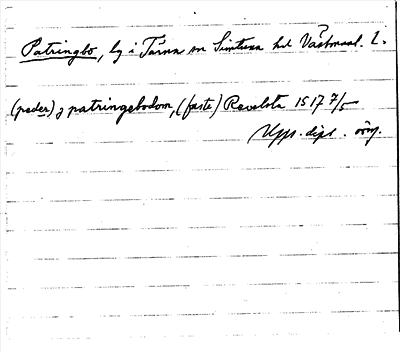 Patringbo, by i Tärna sn Simtuna hd Västmanl. L.
(peder) j patringebodom, (faste) Ravelsta 1517 7/5
Upps. dipl. övrg.